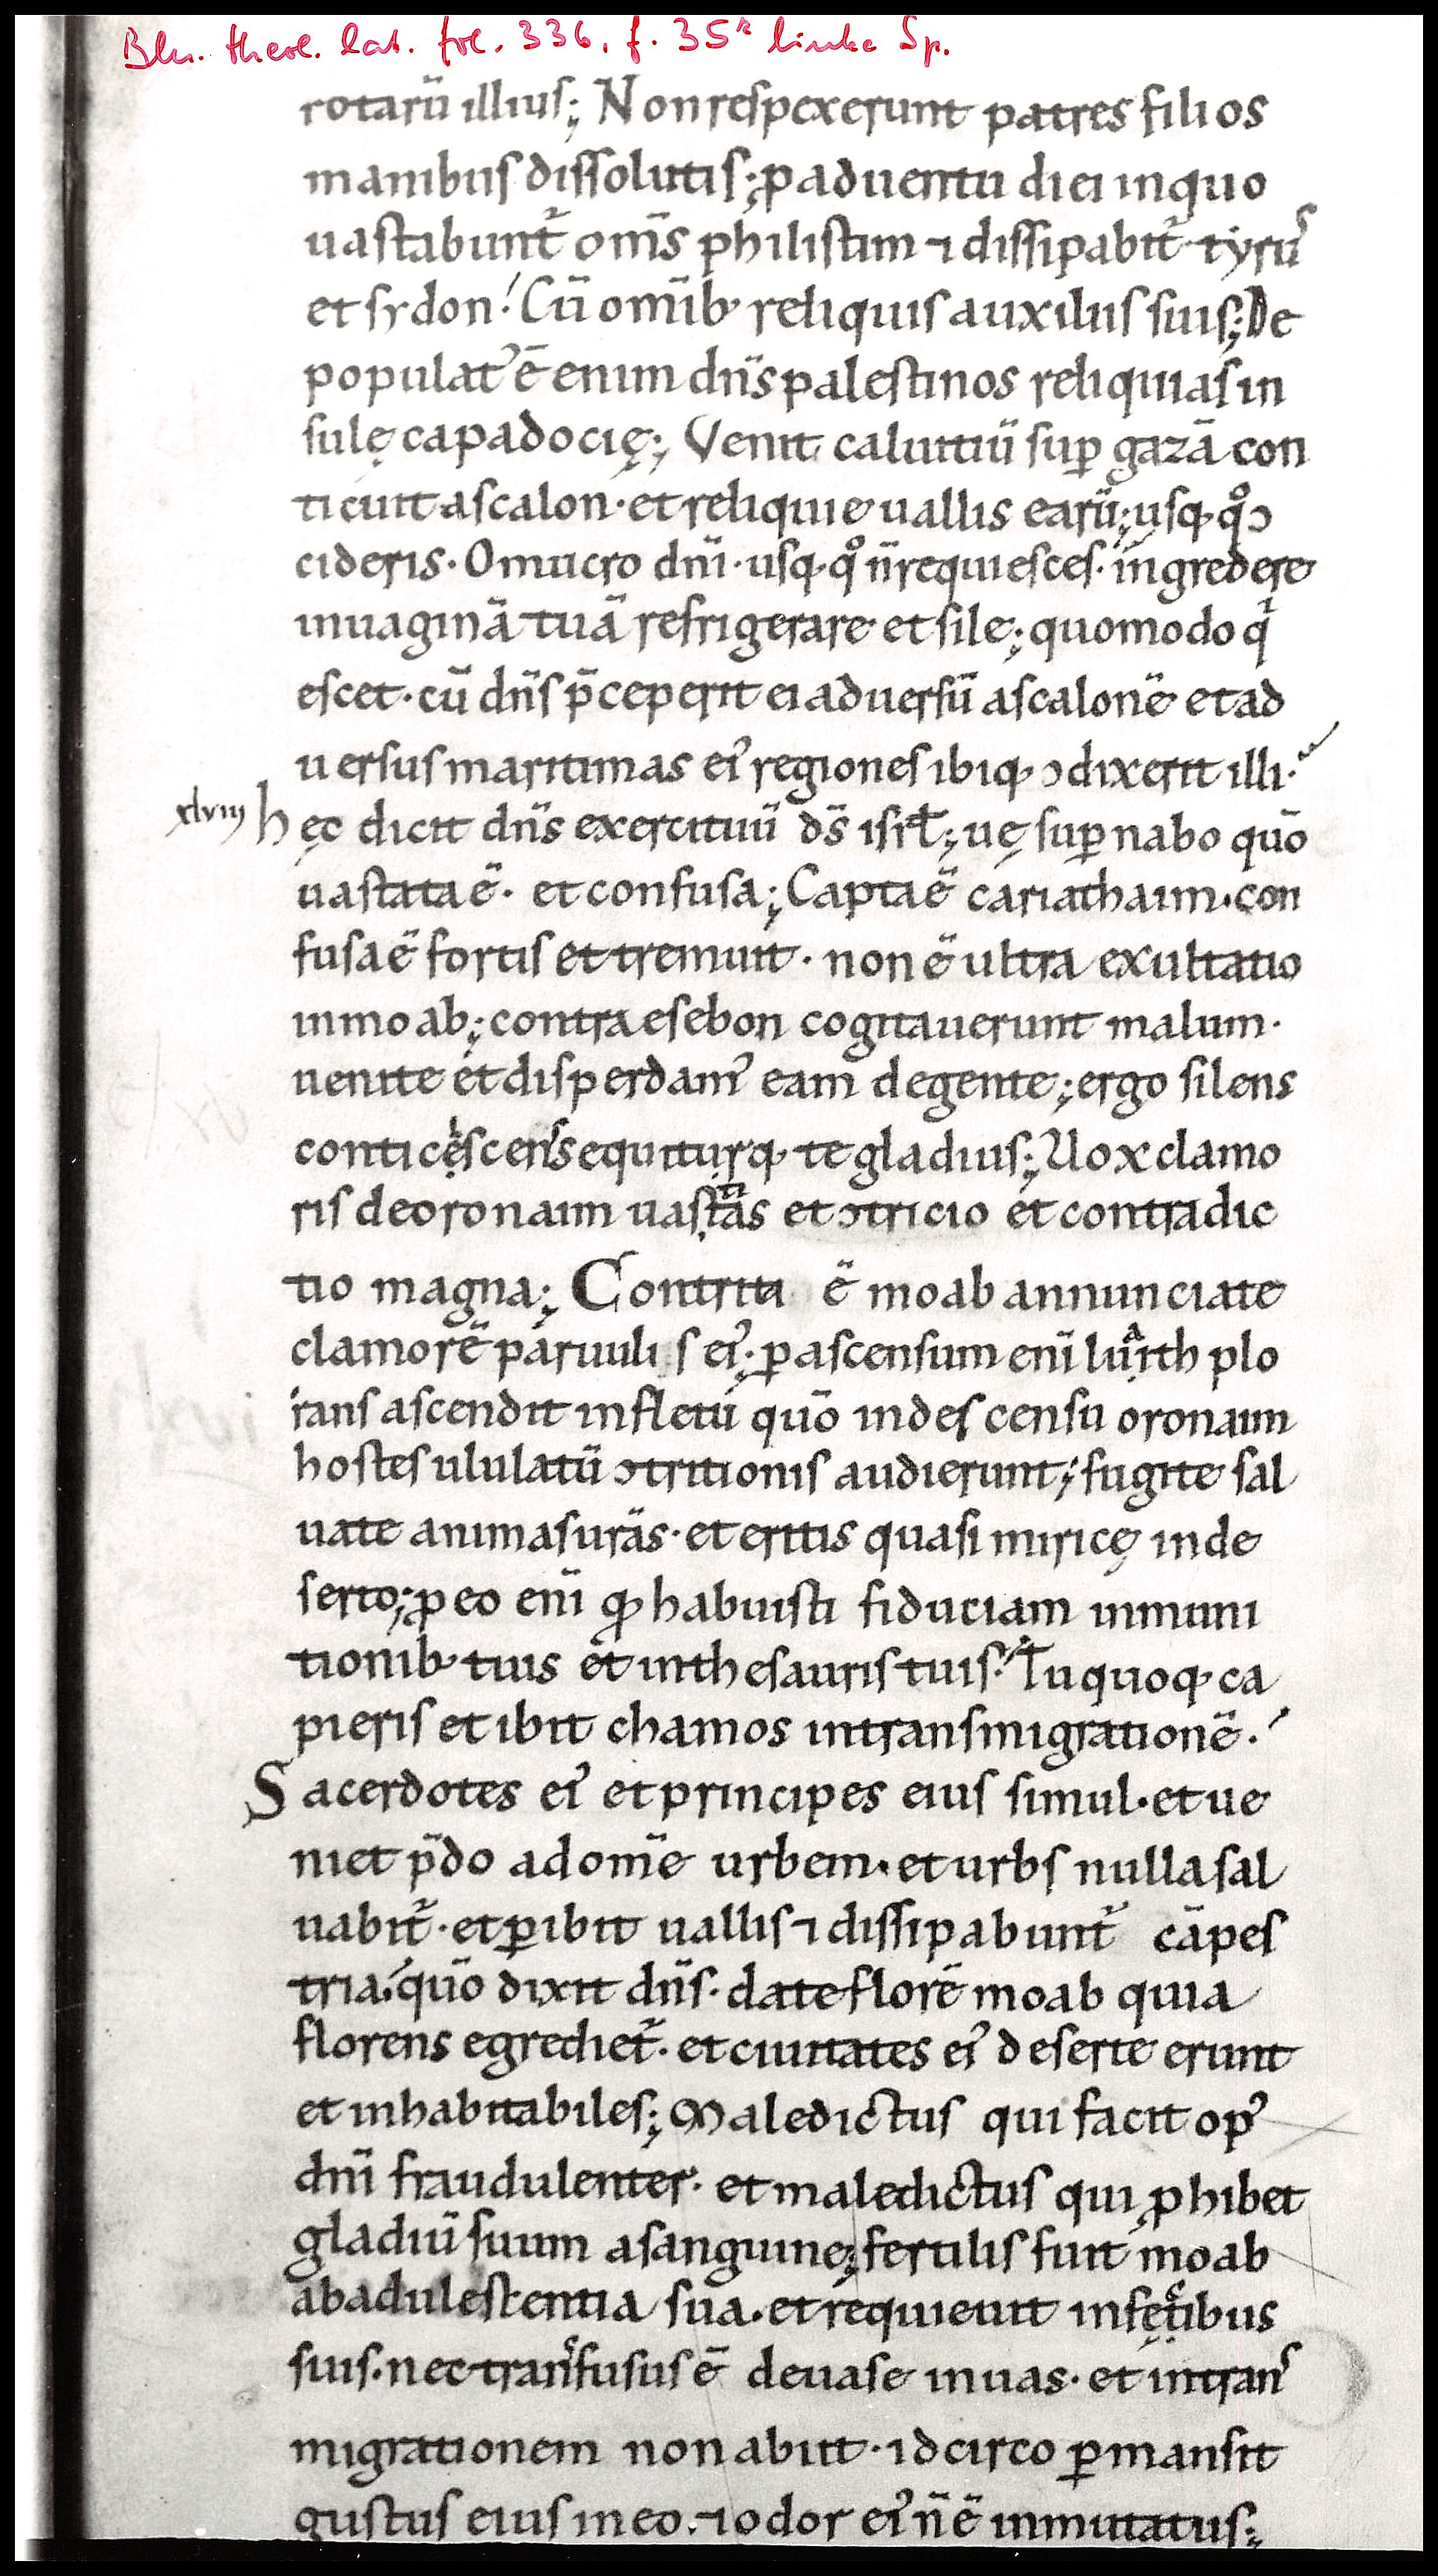 Bln. theol. lat. fol. 336, f. 35ʳ linke Sp.
rotarū illius; Non respexerunt patres filios
manibus dissolutis; p aduentu diei in quo
uastabunt᷒ om̄s philistim ⁊ dissipabit᷒ tyrūˢ
et sydon! Cū omīb; reliquis auxiliis suis; De
populat᾿ ē enim dn̄s palestinos reliquias in
sulę capadocię; Venit caluitiū suꝑ gazā con
ticuit ascalon· et reliquie uallis earū; usq; qͦ ↄ
cideris· O mucro dn̄i· usq; qͦ n̄ requiesces· ingredere
in uaginā tuā refrigerare et sile; quomodo qⁱ
escet· cū dn̄s p̄ceperit ei aduersū ascalonē et ad
uersus maritimas ei᾿ regiones ibiq; ↄdixerit illi·
xlviii hęc dicit dn̄s exercituū ds̄ isrł; uę suꝑ nabo quō
uastata ē· et confusa; Capta ē cariathaim· con
fusa ē fortis et tremuit· non ē ultra exultatio
in moab; contra esebon cogitauerunt malum·
uenite et disperdam᾿ eam de gente; ergo silens
conticescens sequiturq; te gladius; Uox clamo
ris de oronaim uastas et ↄtricio et contradic
tio magna; Contrita ē moab annunciate
clamorē paruulis ei᾿; ꝑ ascensum eni᷄ luith plo
rans ascendit in fletu quō in descensu oronaim
hostes ululatū ↄtritionis audierunt; fugite sal
uate animas urās· et eritis quasi miricę in de
serto; ꝓ eo enī qđ habuisti fiduciam in muni
tionib; tuis et in thesauris tuis! Tu quoq; ca
pieris et ibit chamos in transmigrationē·
Sacerdotes ei᾿ et principes eius simul· et ue
niet p̄do ad omē urbem· et urbs nulla sal
uabit᷒· et ꝑibit uallis ⁊ dissipabunt᷒ cāpes
tria! quō dixit dn̄s· date florē moab quia
florens egrediet᷒· et ciuitates ei᾿ deserte erunt
et inhabitabiles; Maledictus qui facit op᾿
dn̄i fraudulenter· et maledictus qui ꝓhibet
gladiū suum a sanguine; fertilis fuit moab
ab adulescentia sua· et requieuit in fęcibus
suis· nec transfusus ē de uase in uas· et in trans
migrationem non abiit· idcirco ꝑmansit
gustus eius in eo· ⁊ odor ei᾿ n̄ ē inmutatus;